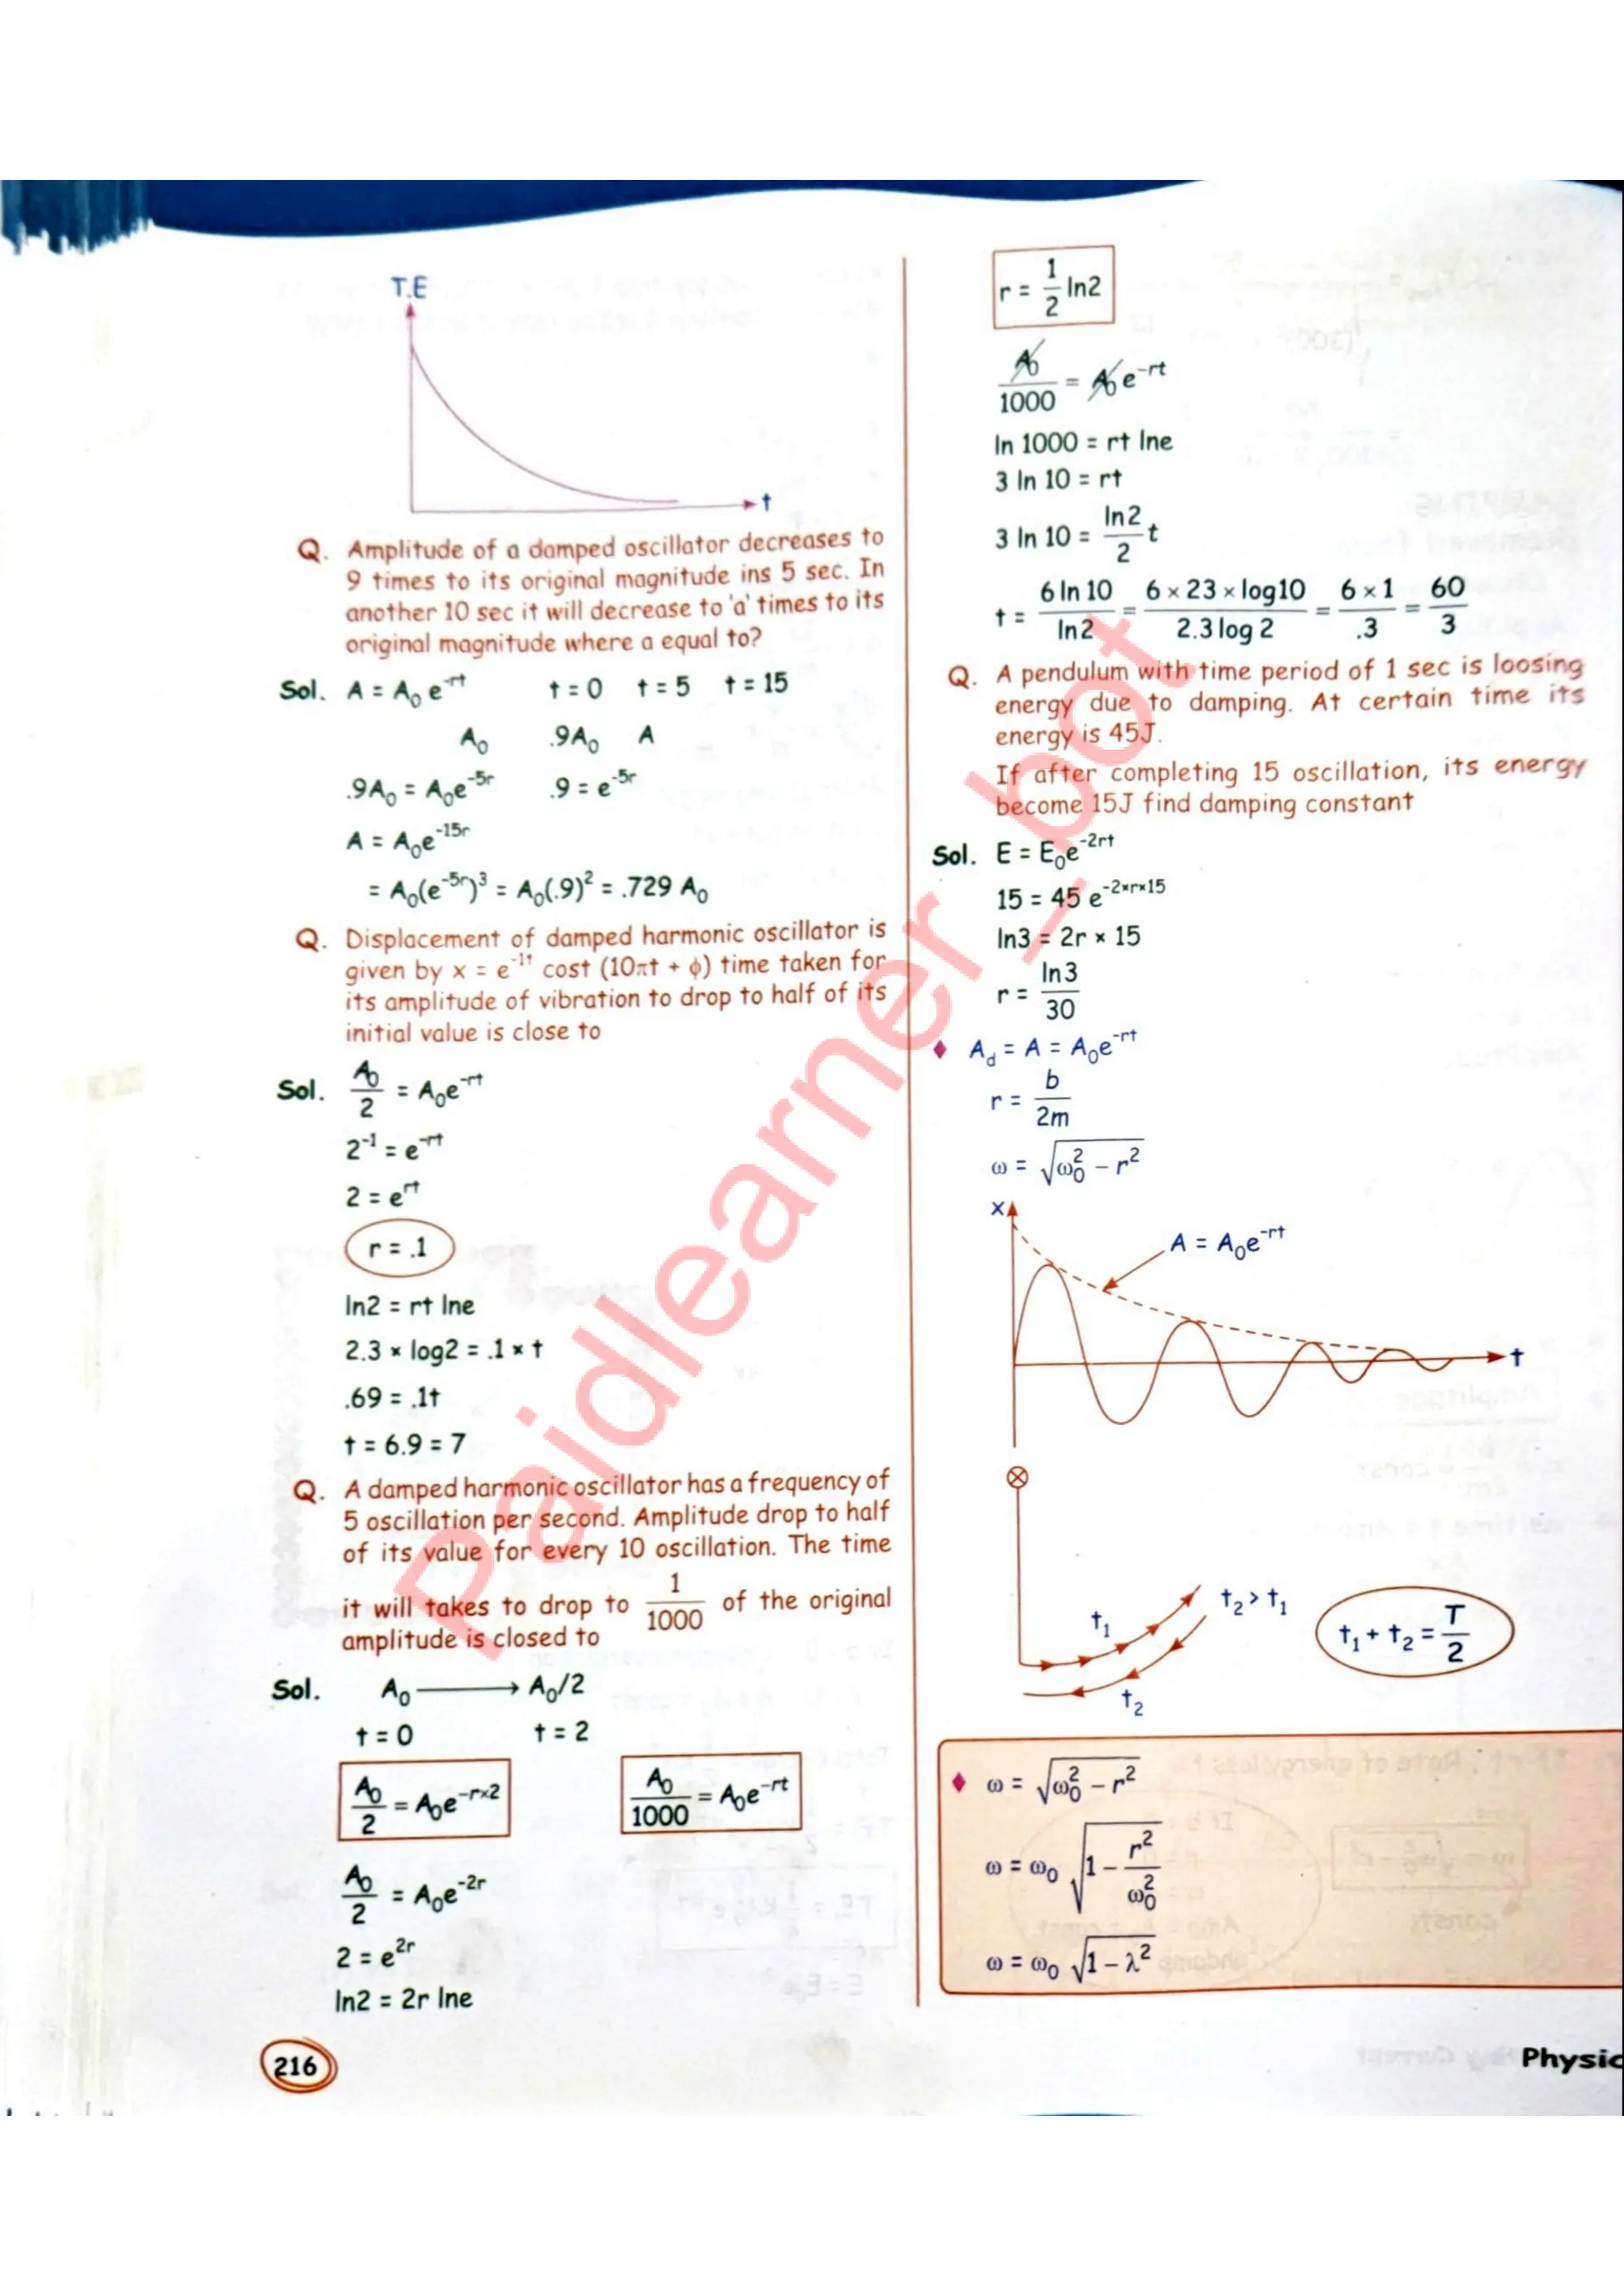 T.E
t
Q. Amplitude of a damped oscillator decreases to
9 times to its original magnitude ins 5 sec. In
another 10 sec it will decrease to 'a' times to its
original magnitude where a equal to?
Sol. A = A₀ e⁻ʳᵗ t = 0 t = 5 t = 15
A₀ .9A₀ A
.9A₀ = A₀e⁻⁵ʳ .9 = e⁻⁵ʳ
A = A₀e⁻¹⁵ʳ
= A₀(e⁻⁵ʳ)³ = A₀(.9)² = .729 A₀
Q. Displacement of damped harmonic oscillator is
given by x = e⁻¹ᵗ cost (10πt + ϕ) time taken for
its amplitude of vibration to drop to half of its
initial value is close to
Sol. A₀/2 = A₀e⁻ʳᵗ
2⁻¹ = e⁻ʳᵗ
2 = eʳᵗ
r = .1
ln2 = rt lne
2.3 × log2 = .1 × t
.69 = .1t
t = 6.9 = 7
Q. A damped harmonic oscillator has a frequency of
5 oscillation per second. Amplitude drop to half
of its value for every 10 oscillation. The time
it will takes to drop to 1/1000 of the original
amplitude is closed to
Sol. A₀ ⟶ A₀/2
t = 0 t = 2
A₀/2 = A₀e⁻ʳˣ² A₀/1000 = A₀e⁻ʳᵗ
A₀/2 = A₀e⁻²ʳ
2 = e²ʳ
ln2 = 2r lne
216
r = 1/2 ln2
A₀/1000 = A₀ e⁻ʳᵗ
ln 1000 = rt lne
3 ln 10 = rt
3 ln 10 = ln2/2 t
t = 6 ln 10/ln2 = 6 × 23 × log10/2.3 log 2 = 6 × 1/.3 = 60/3
Q. A pendulum with time period of 1 sec is loosing
energy due to damping. At certain time its
energy is 45J.
If after completing 15 oscillation, its energy
become 15J find damping constant
Sol. E = E₀e⁻²ʳᵗ
15 = 45 e⁻²ˣʳˣ¹⁵
ln3 = 2r × 15
r = ln3/30
♦ A_d = A = A₀e⁻ʳᵗ
r = b/2m
ω = √(ω₀² − r²)
x
A = A₀e⁻ʳᵗ
t
t₁
t₂ > t₁
t₁ + t₂ = T/2
t₂
♦ ω = √(ω₀² − r²)
ω = ω₀ √(1 − r²/ω₀²)
ω = ω₀ √(1 − λ²)
Physic
Paidlearner_bot